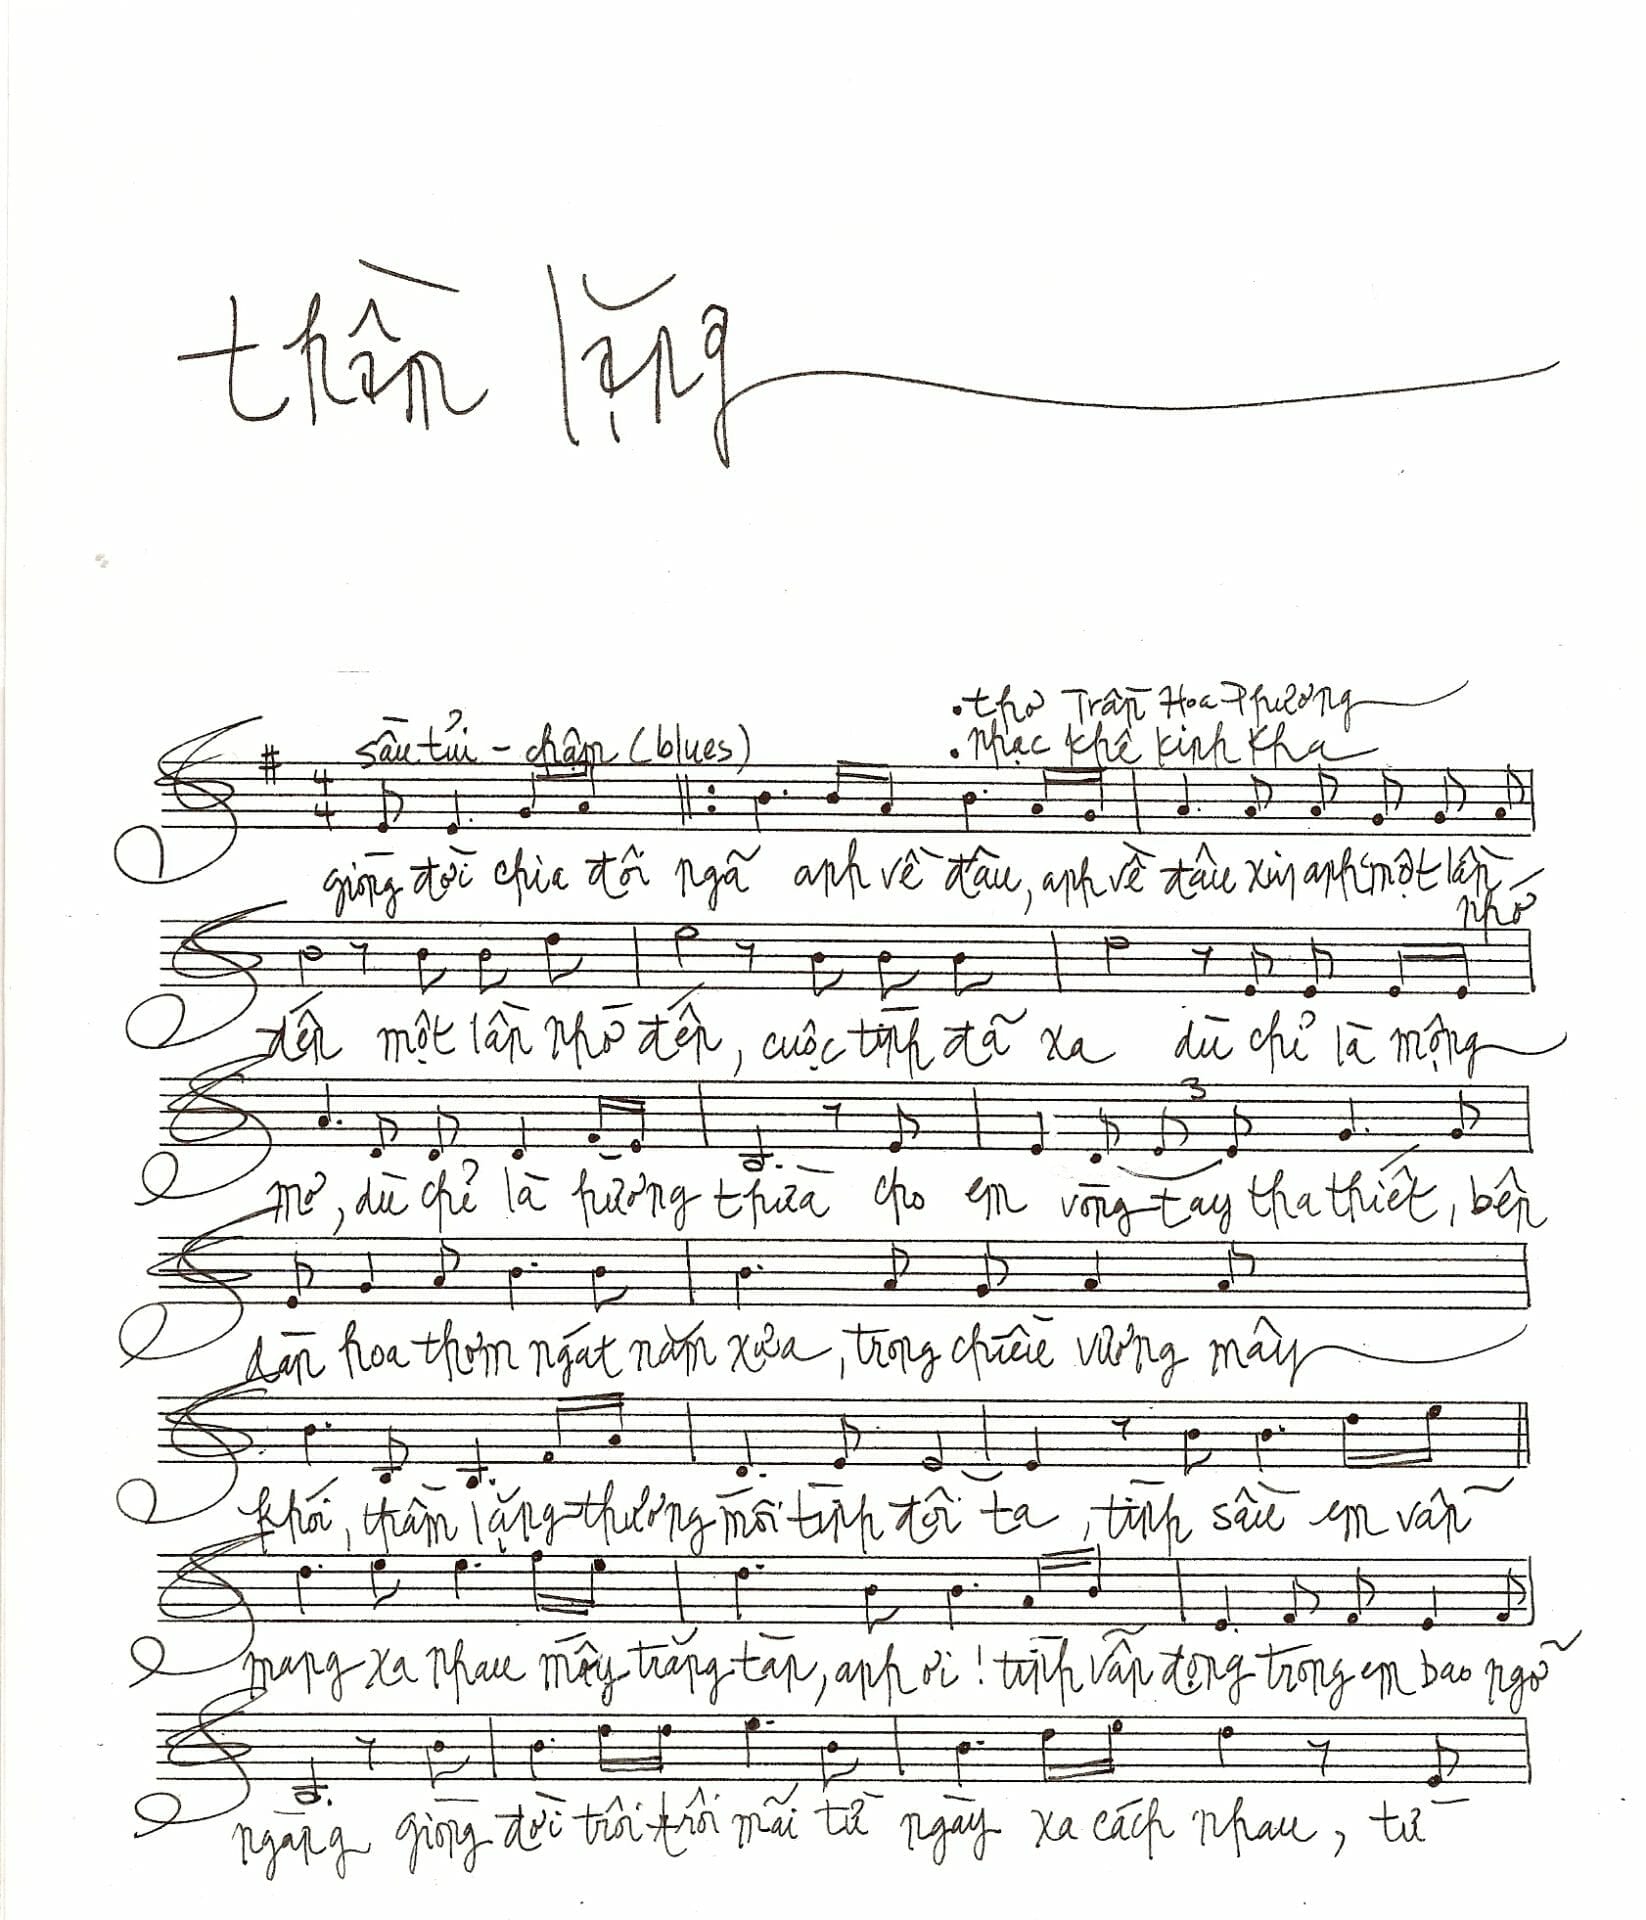 thần lặng
. thơ Trần Hoa Phương
sầu tủi - chậm (blues)
. nhạc Khê Kinh Kha
4
4
giòng đời chia đôi ngã anh về đâu, anh về đâu xin anh một lần
nhớ
đến một lần nhớ đến, cuộc tình đã xa dù chỉ là mộng
3
mơ, dù chỉ là hương thừa cho em vòng tay tha thiết, bên
dàn hoa thơm ngát năm xưa, trong chiều vương mây
khói, thầm lặng thương mối tình đôi ta, tình sầu em vẫn
mang xa nhau mây trắng tàn, anh ơi! tình vẫn đọng trong em bao ngỡ
ngàng giòng đời trôi trôi mãi từ ngày xa cách nhau, từ